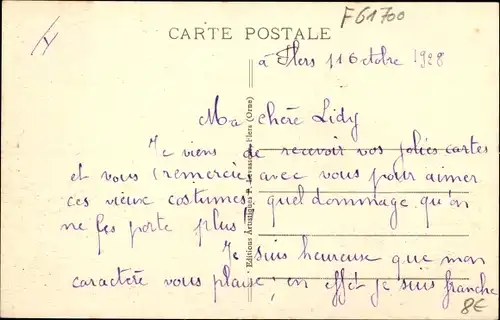 F61700
CARTE POSTALE
à Flers 11 Octobre 1928
Ma chère Lidy
Je viens de recevoir vos jolies cartes
et vous remercie, avec vous pour aimer
ces vieux costumes, quel dommage qu'on
ne les porte plus
Je suis heureuse que mon
caractère vous plaise, en effet je suis franche
Editions Artistiques P. Flers (Orne)
8€